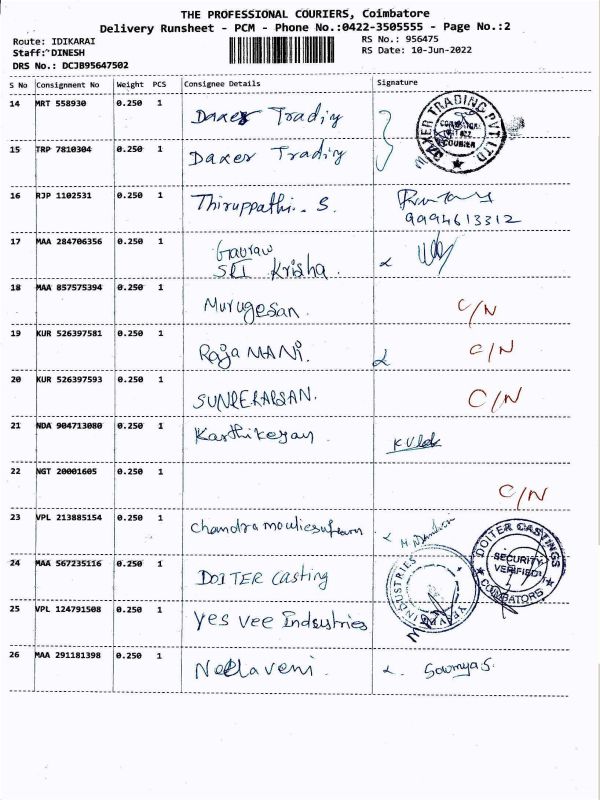 THE PROFESSIONAL COURIERS, Coimbatore
Delivery Runsheet - PCM - Phone No.:0422-3505555 - Page No.:2
Route: IDIKARAI
RS No.: 956475
Staff: DINESH
RS Date: 10-Jun-2022
DRS No.: DCJB95647502
S No Consignment No Weight PCS Consignee Details Signature
14 MRT 558930 0.250 1 Daxer Trading
DAXER TRADING PVT LTD
COURIER
15 TRP 7810304 0.250 1 Daxer Trading
16 RJP 1102531 0.250 1 Thiruppathi. S.
9994613312
17 MAA 284706356 0.250 1 Gaurav
SRI Krisha.
18 MAA 857575394 0.250 1 Murugesan. C/N
19 KUR 526397581 0.250 1 Raja MANI. C/N
20 KUR 526397593 0.250 1 C/N
21 NDA 904713080 0.250 1 Karthikeyan
22 NGT 20001605 0.250 1 C/N
23 VPL 213885154 0.250 1
DOITER CASTINGS
SECURITY
VERIFIED
COIMBATORS
24 MAA 567235116 0.250 1 DOITER Casting
INDUSTRIES
25 VPL 124791508 0.250 1 Yes Vee Industries
26 MAA 291181398 0.250 1 Neelaveni. Sowmya S.